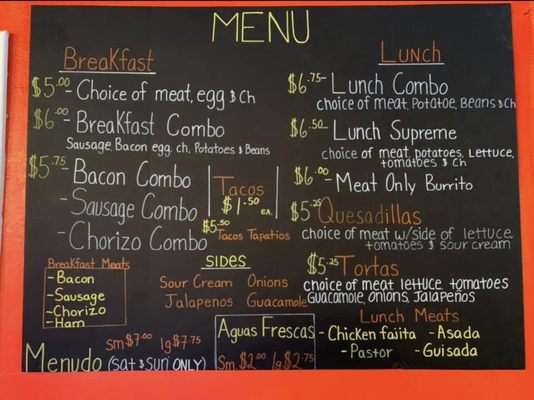 MENU
Breakfast
$5.00 - Choice of meat, egg & ch
$6.00 - Breakfast Combo
Sausage, Bacon egg, ch, Potatoes & Beans
$5.75 - Bacon Combo
- Sausage Combo
- Chorizo Combo
Tacos
$1.50 EA.
$5.50
Tacos Tapatios
Breakfast Meats
- Bacon
- Sausage
- Chorizo
- Ham
SIDES
Sour Cream Onions
Jalapenos Guacamole
sm $7.00 lg $7.75
Menudo (sat & sun ONLY)
Aguas Frescas
Sm. $2.00 lg $2.75
Lunch
$6.75 - Lunch Combo
choice of meat, Potatoe, Beans & ch
$6.50 - Lunch Supreme
choice of meat, potatoes, Lettuce,
tomatoes & ch
$6.00 - Meat Only Burrito
$5.25 Quesadillas
choice of meat w/side of lettuce,
tomatoes & sour cream
$5.25 Tortas
choice of meat lettuce tomatoes
Guacamole, onions, Jalapeños
Lunch Meats
- Chicken fajita - Asada
- Pastor - Guisada